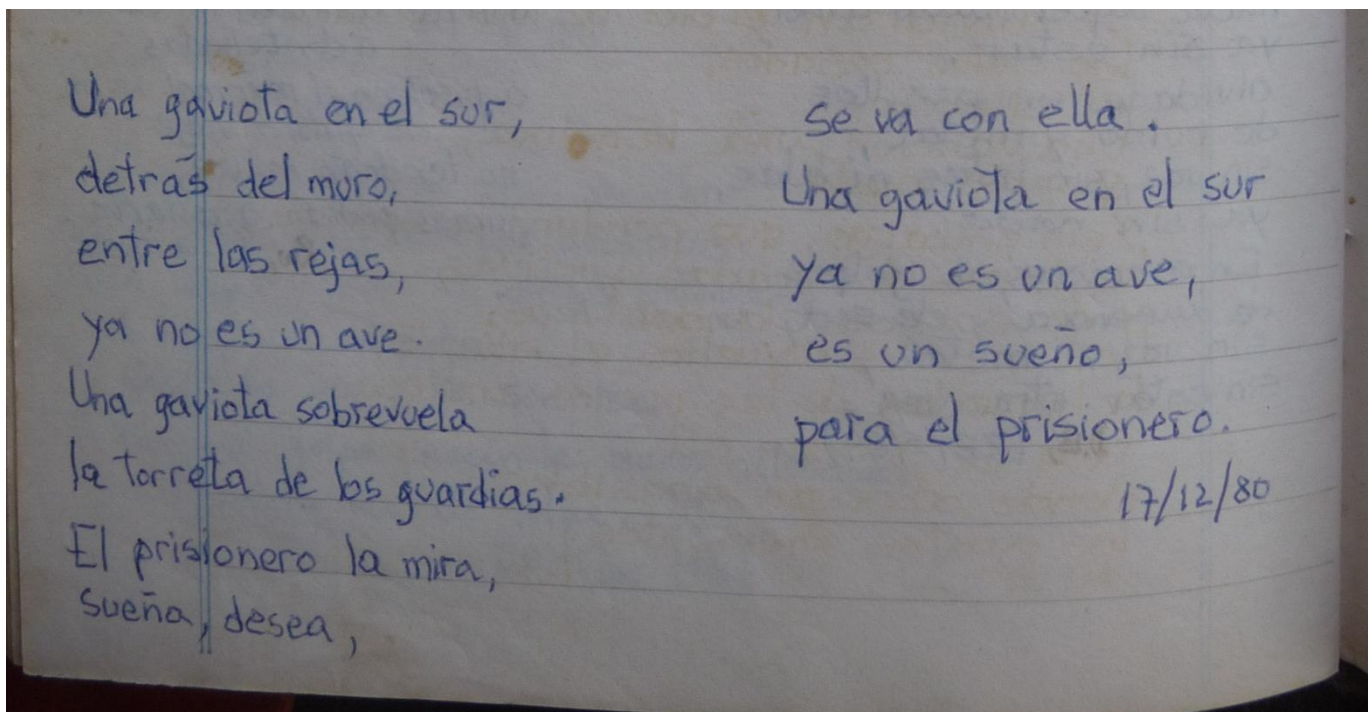 Una gaviota en el sur,
detrás del muro,
entre las rejas,
ya no es un ave.
Una gaviota sobrevuela
la torreta de los guardias.
El prisionero la mira,
sueña, desea,
se va con ella.
Una gaviota en el sur
ya no es un ave,
es un sueño,
para el prisionero.
17/12/80